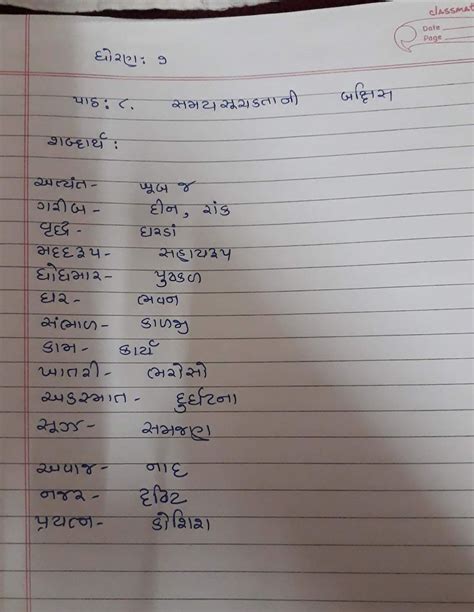 classmate
Date
Page
ધોરણ: ૭
પાઠ: ૮. સમયસૂચકતાની બક્ષિસ
શબ્દાર્થ:
અત્યંત- ખૂબ જ
ગરીબ- દીન, રાંક
વૃદ્ધ- ઘરડાં
મદદરૂપ- સહાયરૂપ
ધોધમાર- પુષ્કળ
ઘર- ભવન
સંભાળ- કાળજી
કામ- કાર્ય
ખાતરી- ભરોસો
અકસ્માત- દુર્ઘટના
સૂઝ- સમજણ
અવાજ- નાદ
નજર- દૃષ્ટિ
પ્રયત્ન- કોશિશ